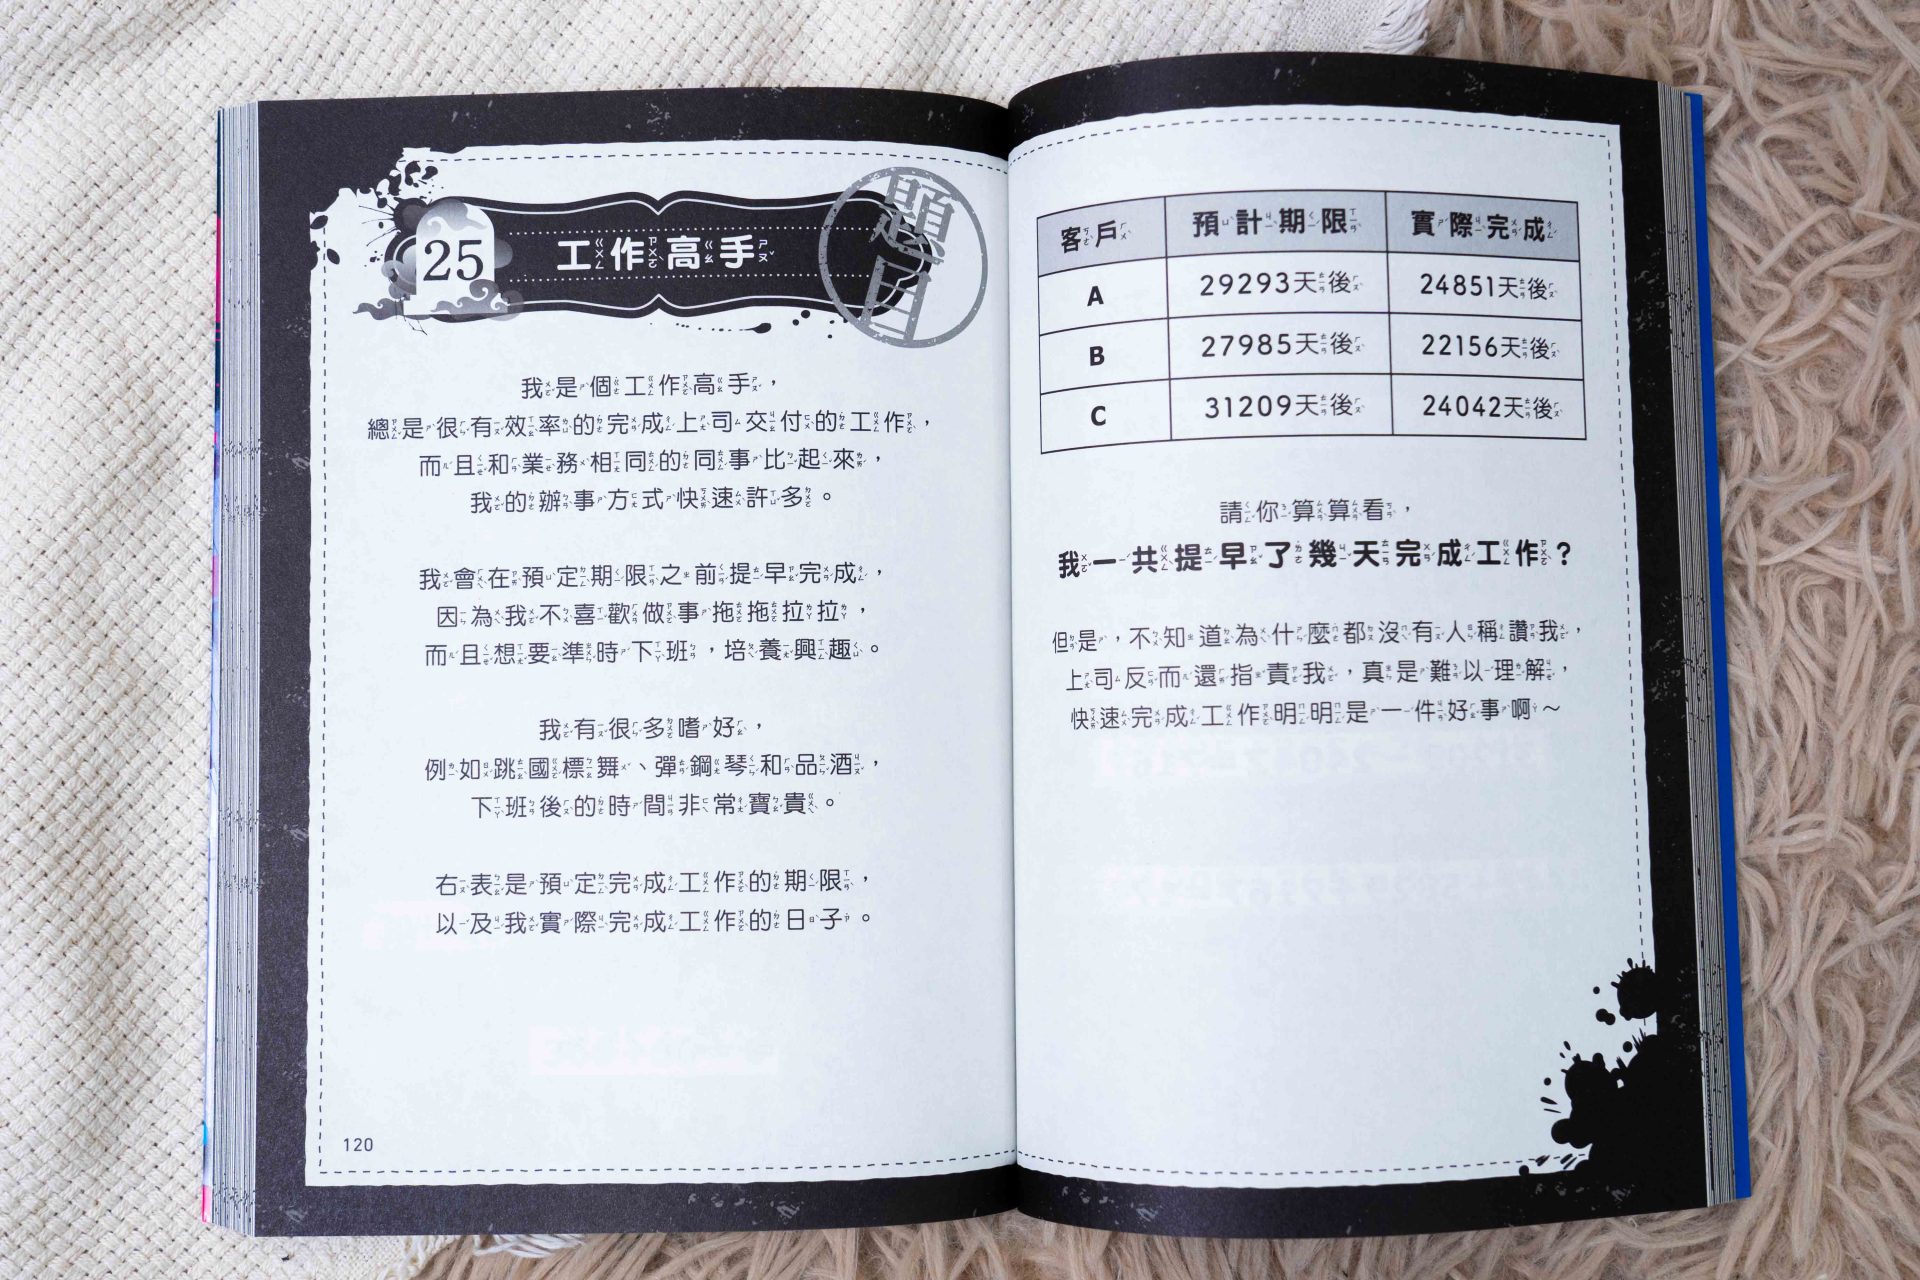 25
工作高手
題目
我是個工作高手，
總是很有效率的完成上司交付的工作，
而且和業務相同的同事比起來，
我的辦事方式快速許多。
我會在預定期限之前提早完成，
因為我不喜歡做事拖拖拉拉，
而且想要準時下班，培養興趣。
我有很多嗜好，
例如跳國標舞、彈鋼琴和品酒，
下班後的時間非常寶貴。
右表是預定完成工作的期限，
以及我實際完成工作的日子。
120
客戶 預計期限 實際完成
A 29293天後 24851天後
B 27985天後 22156天後
C 31209天後 24042天後
請你算算看，
我一共提早了幾天完成工作？
但是，不知道為什麼都沒有人稱讚我，
上司反而還指責我，真是難以理解，
快速完成工作明明是一件好事啊～